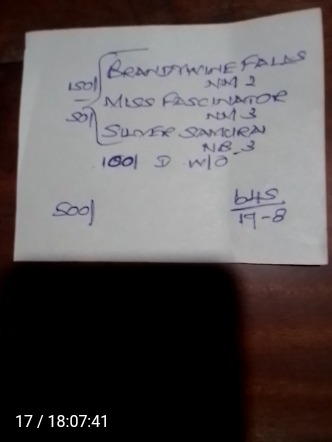 150/ BRANDYWINE FALLS
NM 2
50/ MISS FASCINATOR
NM 3
SILVER SAMURAI
NB-3
100/ D W/O
500/
645
17-8
17 / 18:07:41